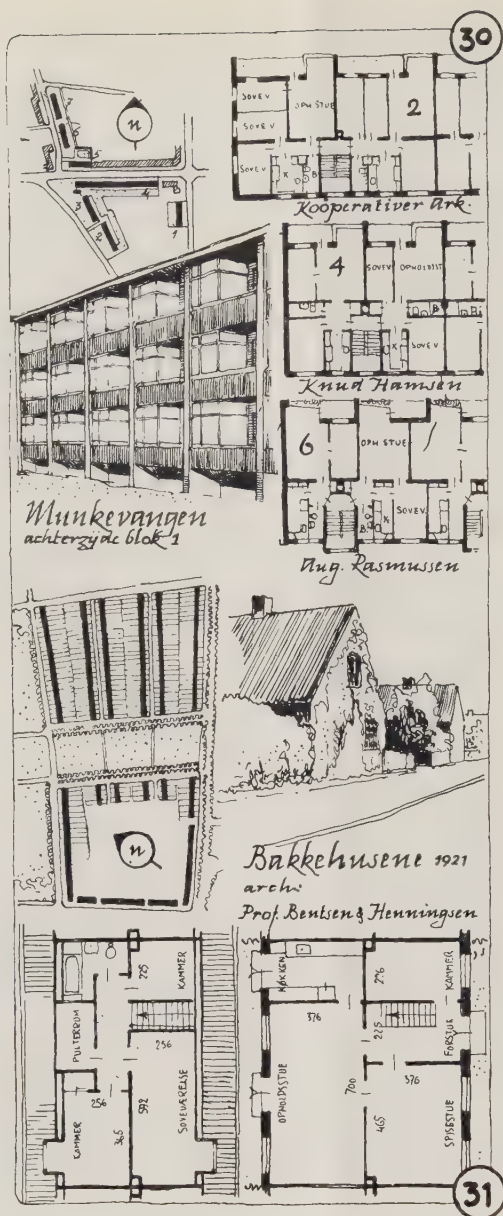 30
n
7
6
5
3
4
2
1
SOVEV
SOVEV
SOVEV
OPH STUE
2
K
B
Kooperativer Ark.
4
SOVEV
OPHOLDSST
B
K
SOVEV
Knud Hansen
6
OPH STUE
K
SOVEV.
Aug. Rasmussen
Munkevangen
achterzijde blok 1
n
Bakkehusene 1921
arch:
Prof. Bentsen & Henningsen
225
KAMMER
PULTERRUM
256
256
KAMMER
365
592
SOVEVÆRELSE
KØKKEN
276
KAMMER
376
225
FORSTUE
376
OPHOLDSSTUE
700
465
SPISESTUE
31